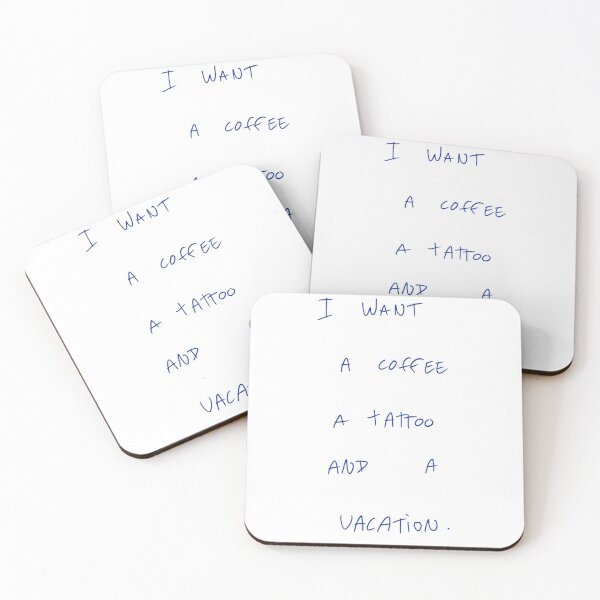 I WANT
A COFFEE
TOO
A
I WANT
A COFFEE
A tATTOO
AND A
I WANT
A COFFEE
A tATTOO
AND
VACA
I WANT
A COFFEE
A tATTOO
AND A
VACATiON.